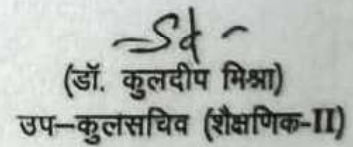 -Sd-
(डॉ. कुलदीप मिश्रा)
उप-कुलसचिव (शैक्षणिक-II)